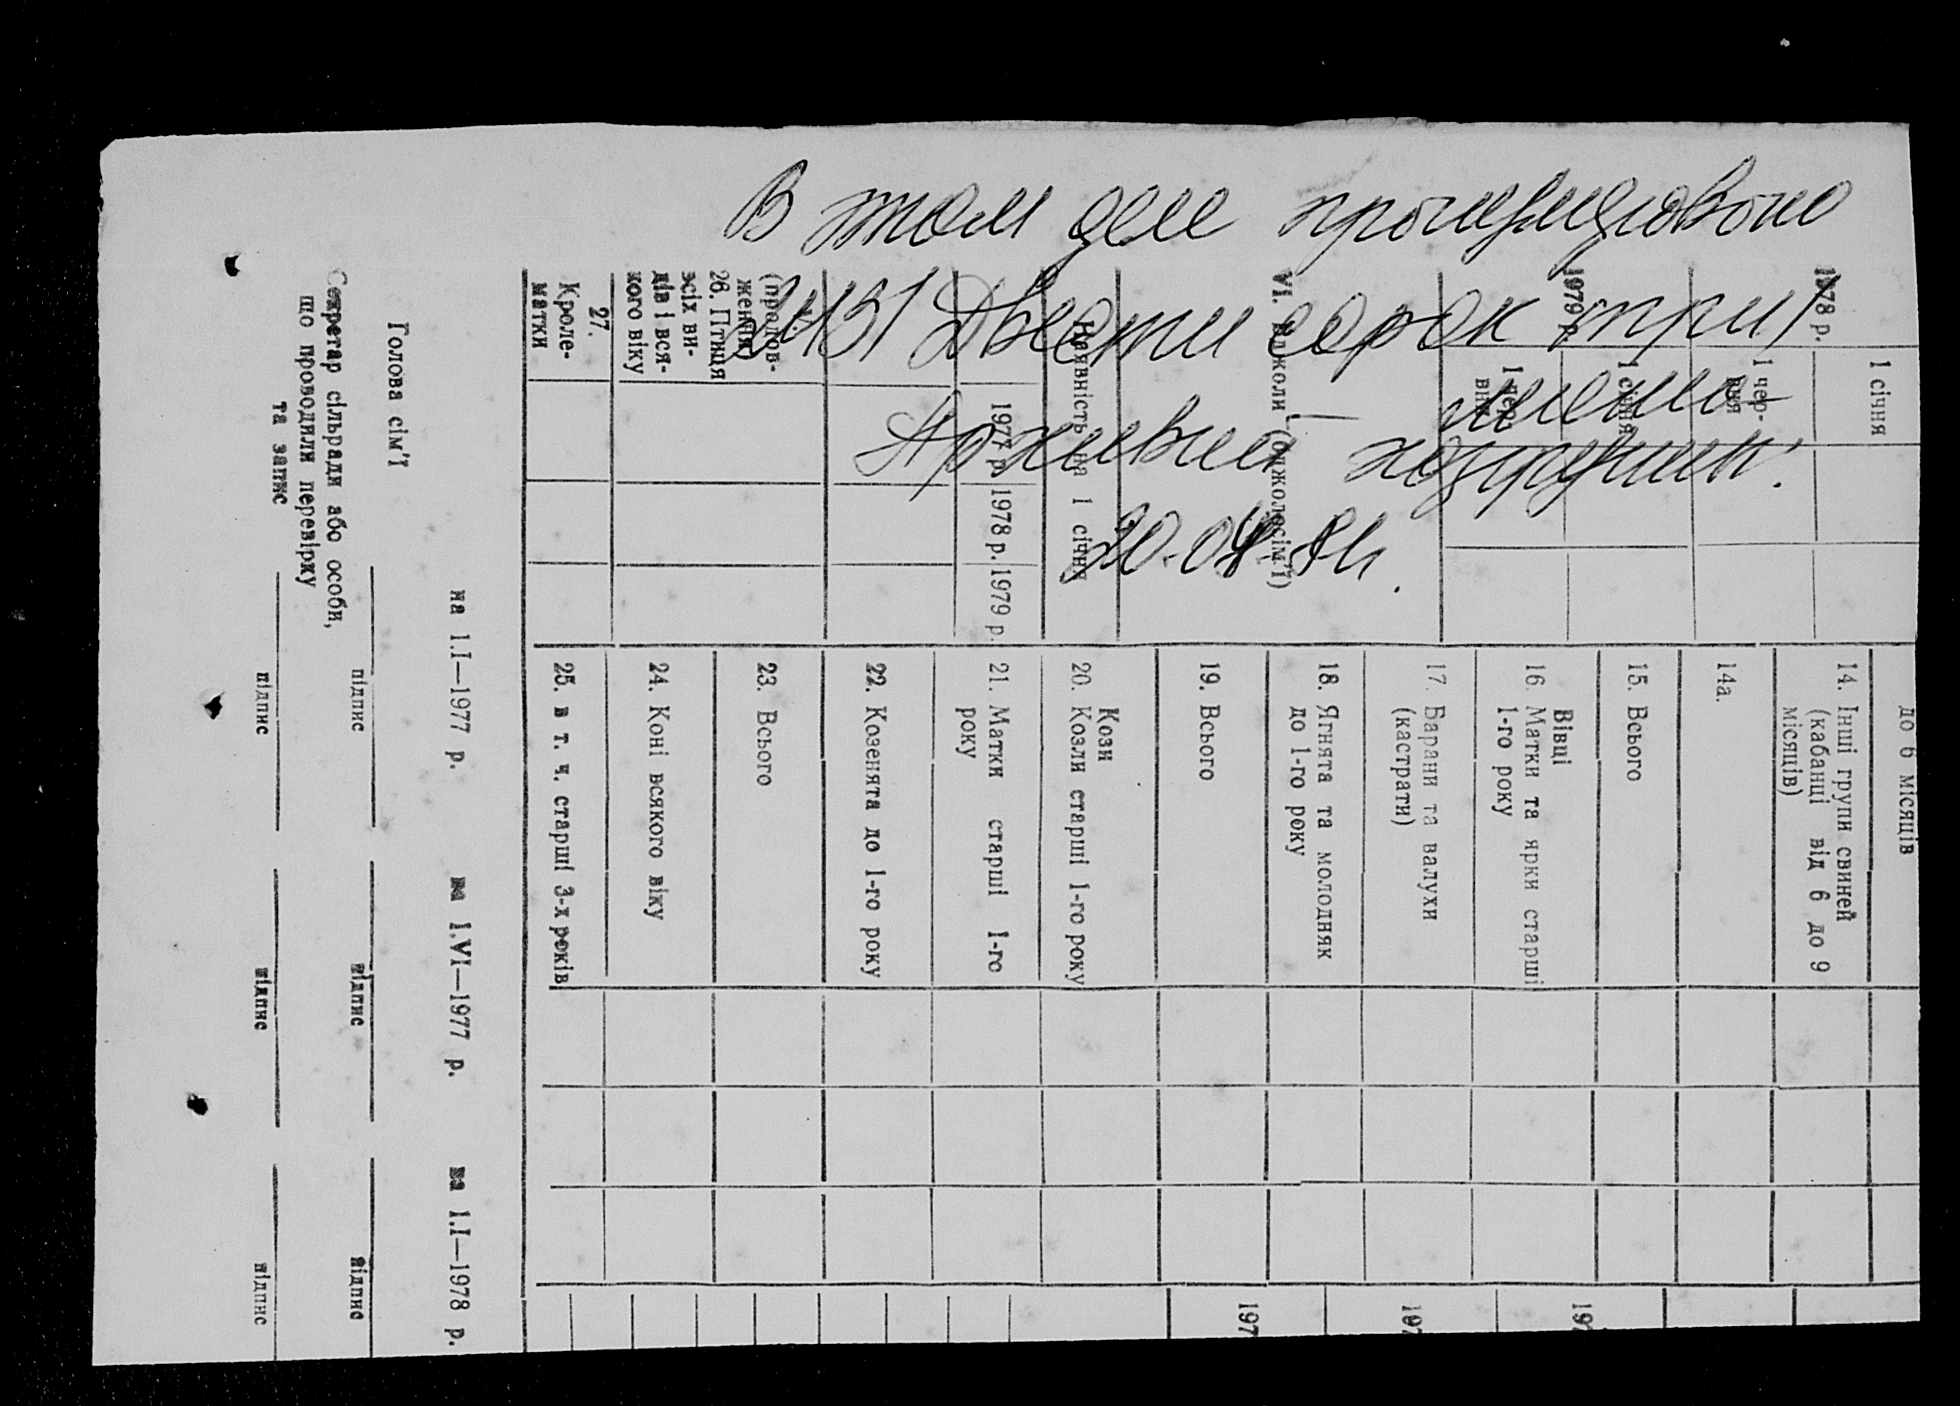 В этом деле пронумеровано
243 / Двести сорок три /
листа
20.04.84.
1978 р.
1 січня
1 чер-
вня
1979 р.
1 січня
1 чер-
вня
VI. Бджоли (бджолосім'ї)
Наявність на 1 січня
1977 р.
1978 р.
1979 р.
(продов-
ження)
26. Птиця
всіх ви-
дів і вся-
кого віку
27.
Кроле-
матки
до 6 місяців
14. Інші групи свиней
(кабанці від 6 до 9
місяців)
14а.
15. Всього
Вівці
16. Матки та ярки старші
1-го року
17. Барани та валухи
(кастрати)
18. Ягнята та молодняк
до 1-го року
19. Всього
Кози
20. Козли старші 1-го року
21. Матки старші 1-го
року
22. Козенята до 1-го року
23. Всього
24. Коні всякого віку
25. в т. ч. старші 3-х років
197
197
197
на 1.I—1977 р.
на 1.VI—1977 р.
на 1.I—1978 р.
Голова сім'ї
підпис
підпис
підпис
Секретар сільради або особи,
що проводили перевірку
та запис
підпис
підпис
підпис